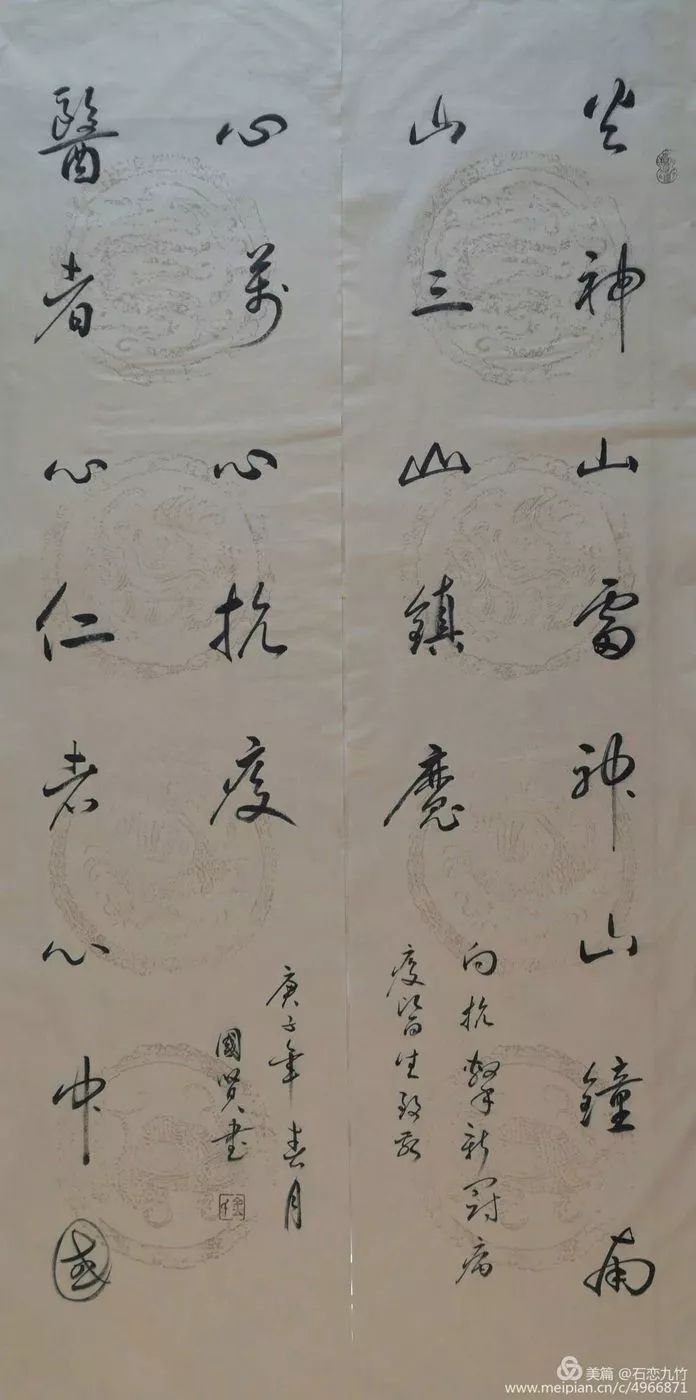 火神山雷神山鐘南
山三山鎮魔
向抗擊新冠病
疫醫生致敬
醫者心仁者心中國
心萬心抗疫
庚子年春月
國賢書
美篇 @石恋九竹
www.meipian.cn/c/4966871